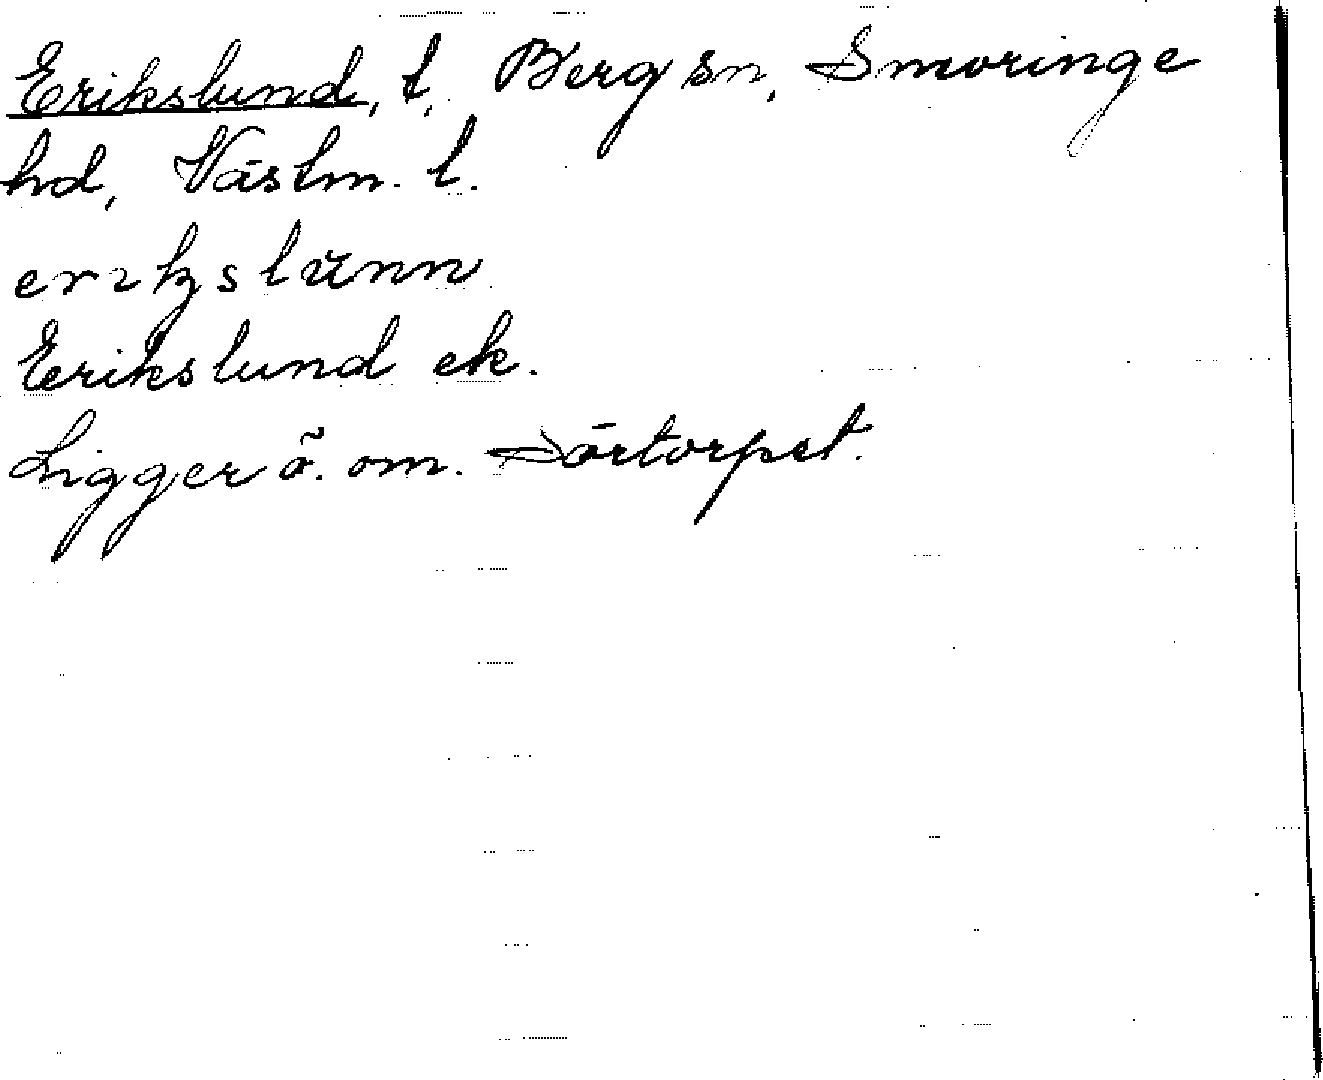 Erikslund, t, Berg sn, Snevringe
hd, Västm. l.
erikslŭnn
Erikslund ek.
Ligger ö. om. Dörtorpet.